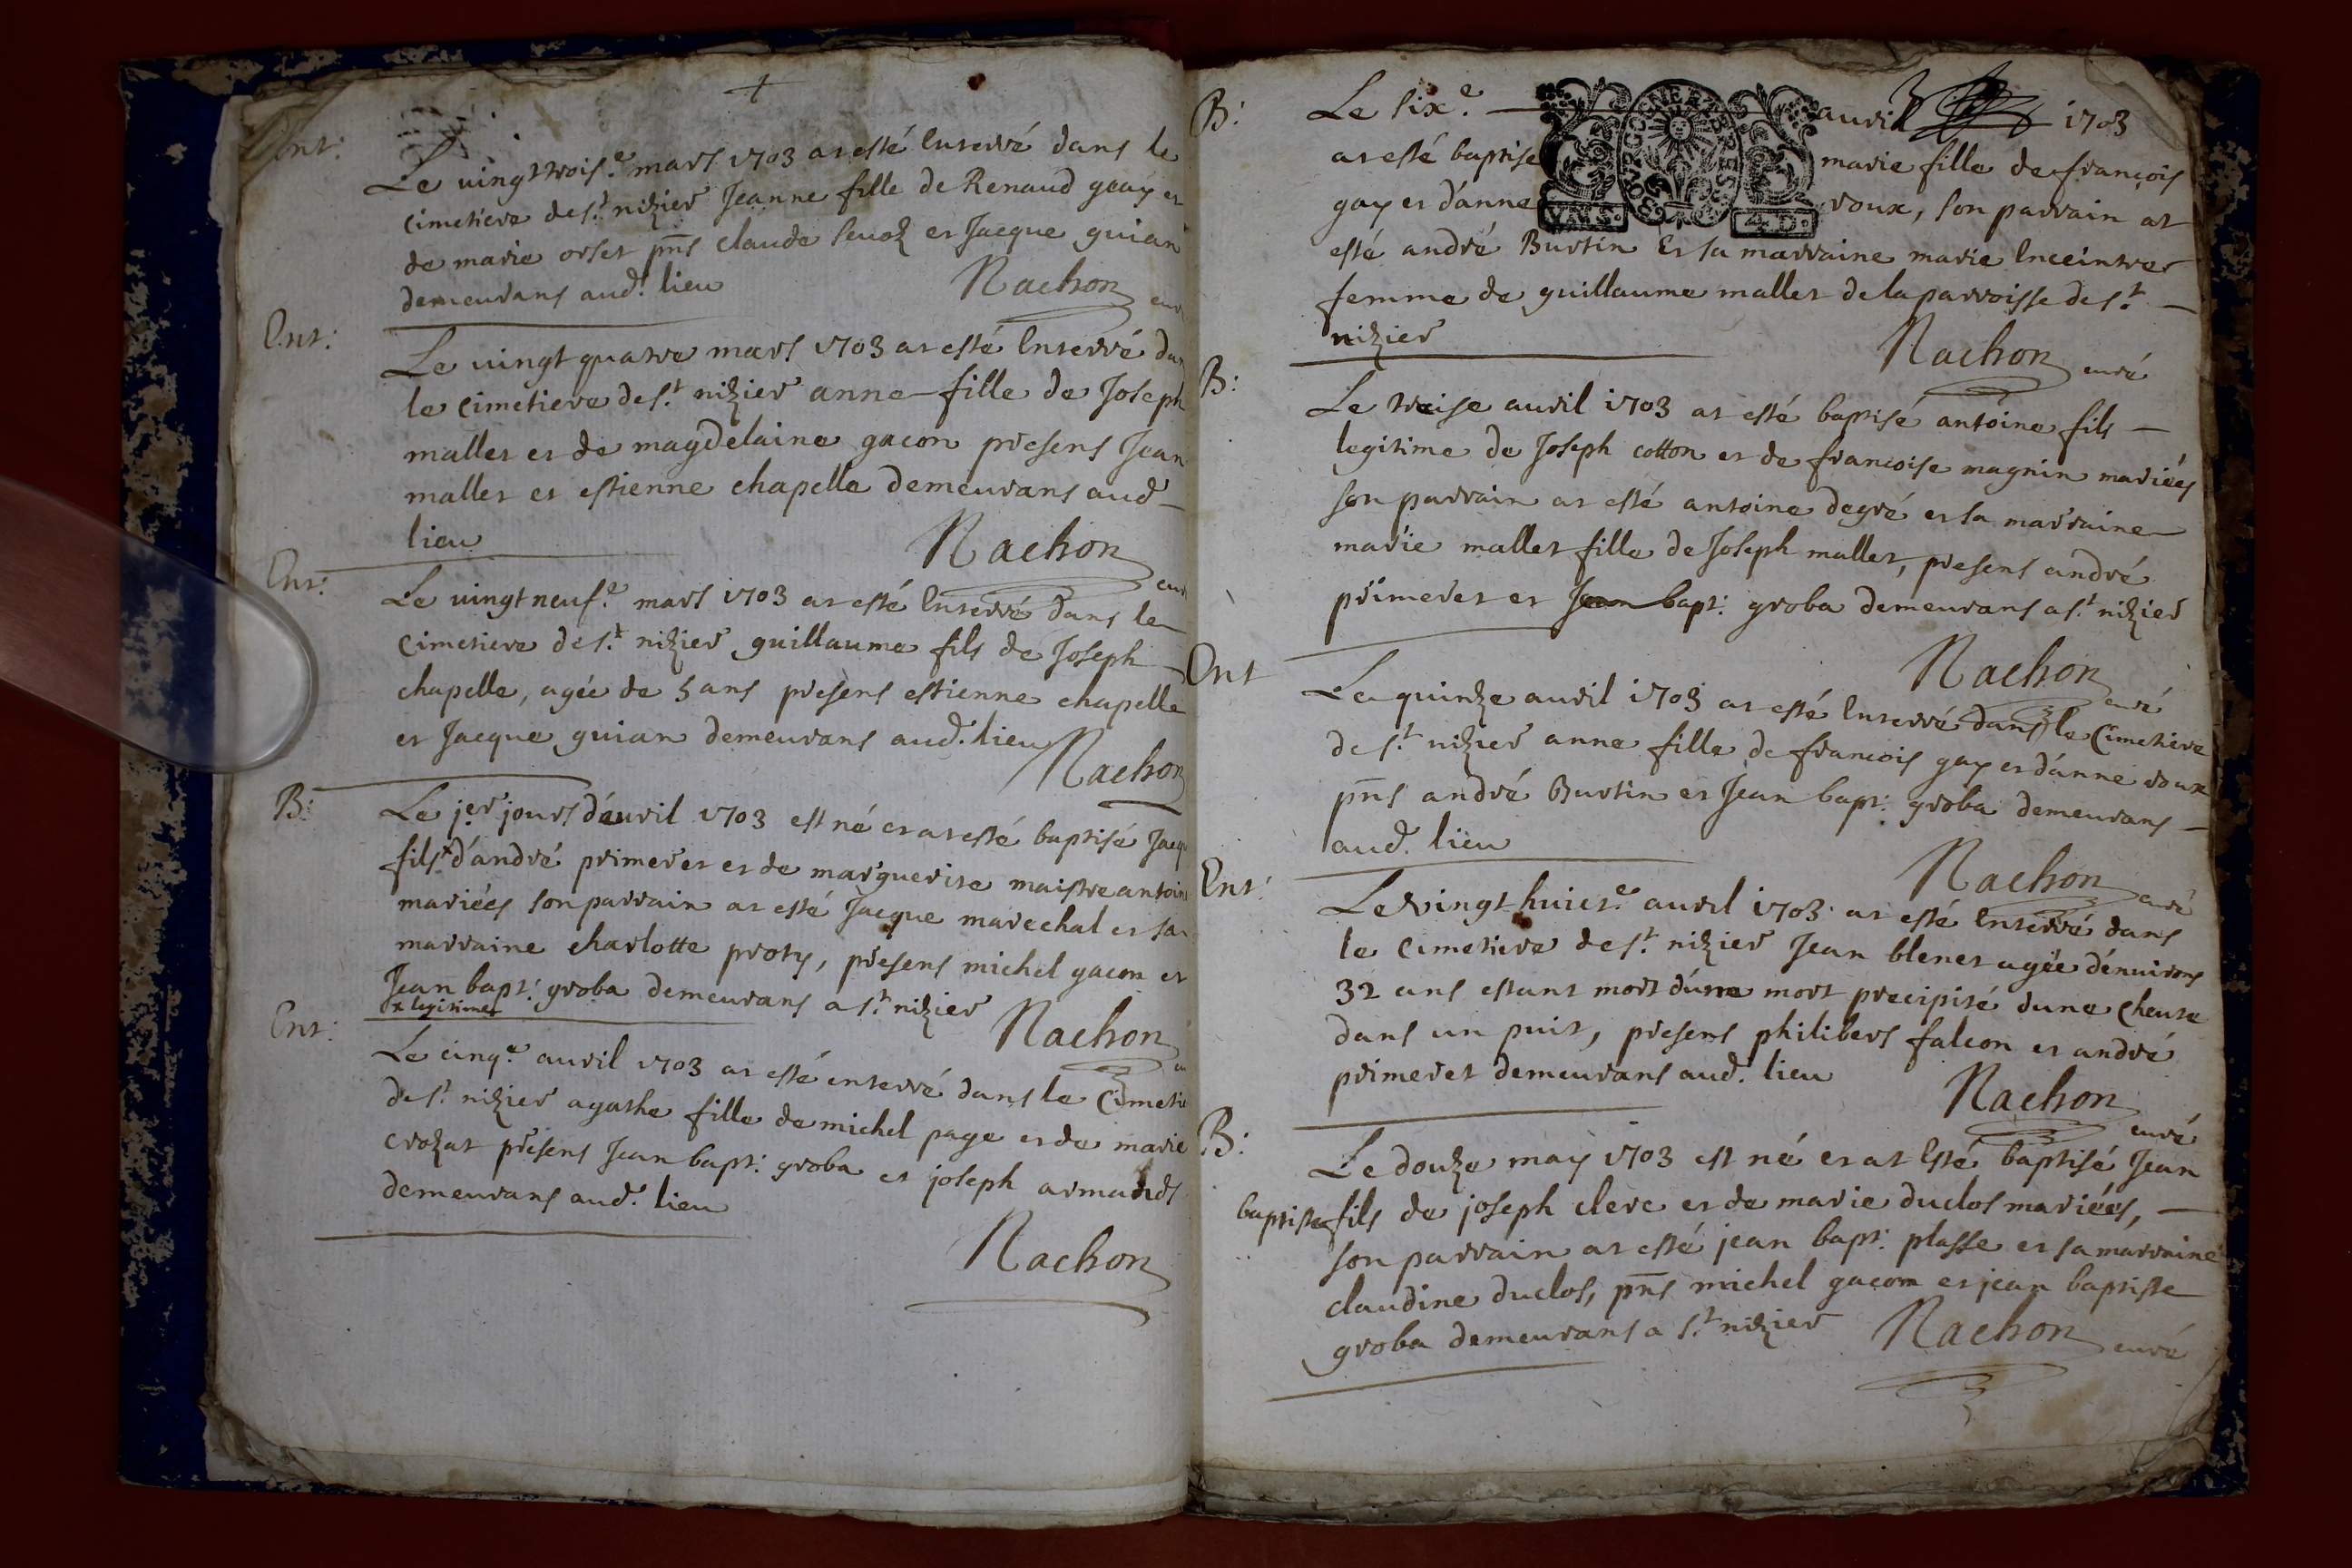 Ent:
Le vingt trois.e mars 1703 at esté Enterré dans le
cimetiere de s.t nizier Jeanne fille de Renaud gay et
de marie orset pñs claude seuoz et Jacque guian
demeurans aud. lieu
Nachon
Ent:
Le vingt quatre mars 1703 at esté Enterré
le cimetiere de s.t nizier anne fille de Joseph
mallet et de magdelaine gacon presens Jean
mallet et estienne chapelle demeurans aud
lieu
Nachon
Ent:
Le vingt neuf.e mars 1703 at esté Enterré dans le
cimetiere de s.t nizier guillaume fils de Joseph
chapelle, agée de 5 ans presens estienne chapelle
et Jacque guian demeurans aud. lieu
Nachon
B:
Le j.er jours d'auril 1703 est né et at esté baptisé
fils x d'andré primeret et de marguerite maistre
mariées son parrain at esté Jacque marechal et sa
marraine charlotte proty, presens michel gacon et
Jean bapt: groba demeurans a s.t nizier
x legitime
Nachon
Ent:
Le cinq.e auril 1703 at esté enterré dans le
de s.t nizier agathe fille de michel page et de marie
crozat presens Jean bapt: groba et joseph
demeurans aud. lieu
Nachon
B:
Le six.e auril 1703
at esté baptise marie fille de françois
gay et d'anne roux, son parrain at
esté andré Burtin Et sa marraine marie
femme de guillaume mallet de la parroisse de s.t
nizier
Nachon curé
B:
Le treise auril 1703 at esté baptisé antoine fils
legitime de Joseph cotton et de francoise magnin mariées
son parrain at esté antoine degré et sa marraine
marie mallet fille de Joseph mallet, presens andré
primeret et Jean bapt: groba demeurans a s.t nizier
Nachon curé
Ent
Le quinze auril 1703 at esté Enterré dans le Cimetiere
de s.t nizier anne fille de francois gay et d'anne roux
pñs andré Burtin et Jean bapt: groba demeurans
aud. lieu
Nachon curé
Ent:
Le vingt huict.e auril 1703 at esté Enterré dans
le cimetiere de s.t nizier Jean blenet agée d'enuirons
32 ans estant mort d'une mort precipité dune cheute
dans un puit, presens philibert falcon et andré
primeret demeurans aud. lieu
Nachon curé
B:
Le douze may 1703 est né et at Esté baptisé Jean
baptiste fils de joseph clerc et de marie duclos mariées,
son parrain at esté jean bapt: plasse et sa marraine
claudine duclos, pñs michel gacon et jean baptiste
groba demeurans a s.t nizier
Nachon curé